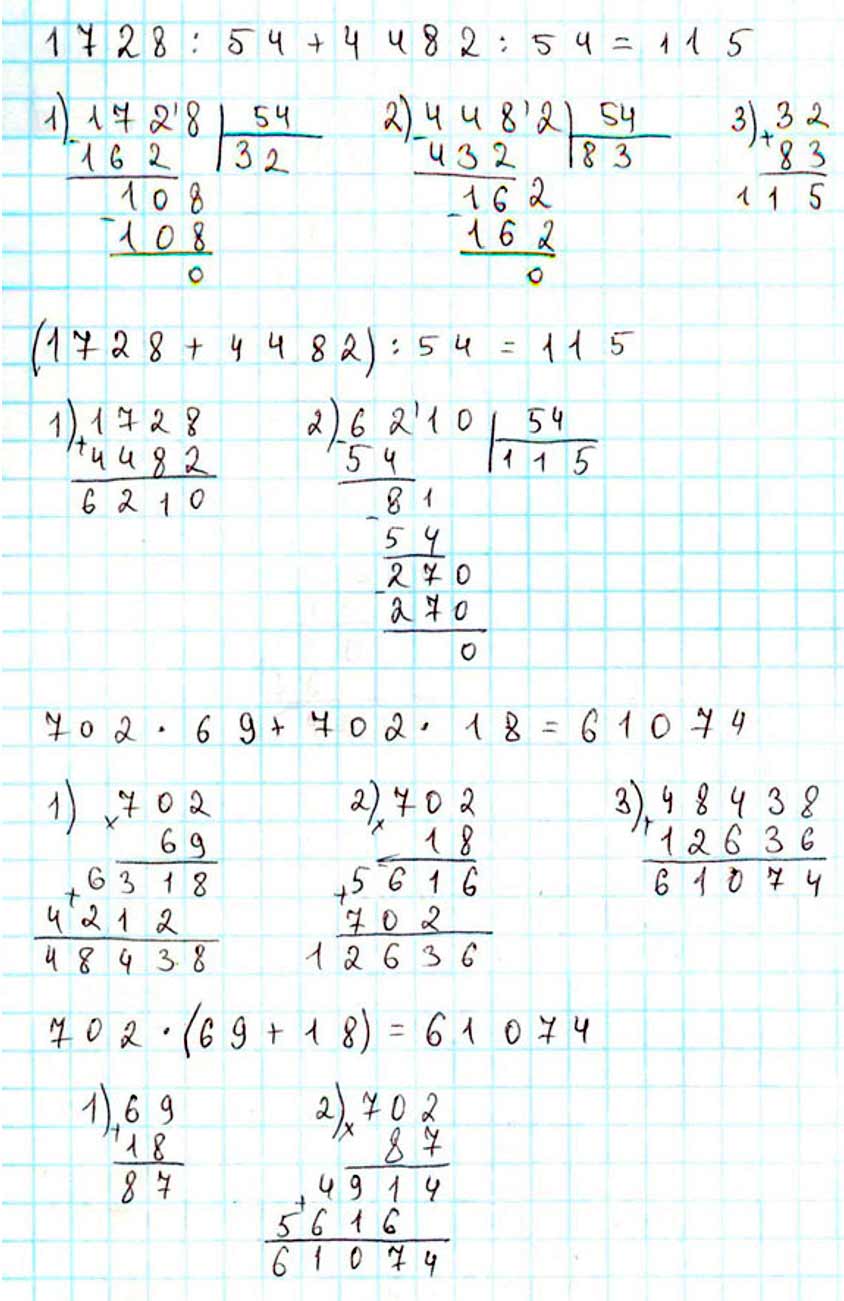 1728 : 54 + 4482 : 54 = 115
1) 172'8 | 54 2) 448'2 | 54 3) 32
- 162 | 32 - 432 | 83 + 83
108 162 115
- 108 - 162
0 0
(1728 + 4482) : 54 = 115
1) 1728 2) 62'10 | 54
+ 4482 - 54 | 115
6210 81
- 54
270
- 270
0
702 · 69 + 702 · 18 = 61074
1) 702 2) 702 3) 48438
× 69 × 18 + 12636
6318 5616 61074
+ 4212 + 702
48438 12636
702 · (69 + 18) = 61074
1) 69 2) 702
+ 18 × 87
87 4914
+ 5616
61074